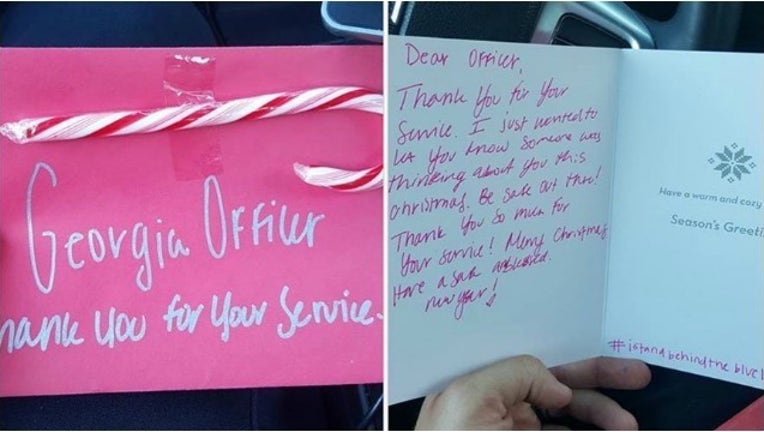 Georgia Officer
hank you for your service.
Dear Officer,
Thank you for your
service. I just wanted to
let you know someone was
thinking about you this
christmas. Be safe out there!
Thank you so much for
your service! Merry Christmas
Have a safe blessed
new year!
Have a warm and cozy
Season's Greeti
#istandbehindtheblue